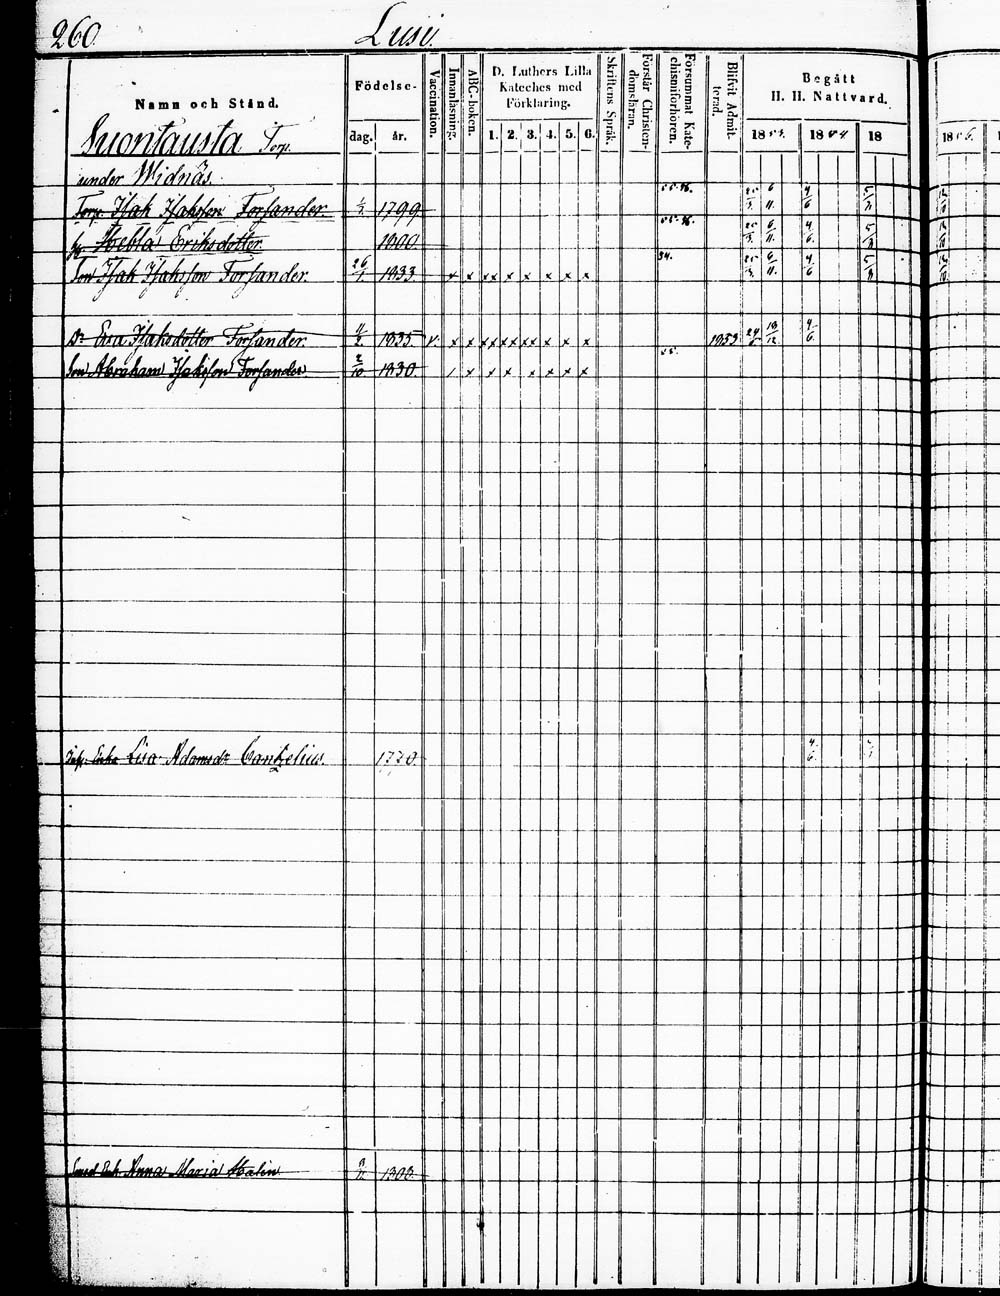 260. Lusi.
Namn och Stånd. Födelse- dag. år. Vaccination. Innanläsning. ABC-boken. D. Luthers Lilla Kateches med Förklaring. 1. 2. 3. 4. 5. 6. Skriftens Språk. Förstår Christendomsläran. Försummat Katechismiförhören. Blifvit Admitterad. Begått H. H. Nattvard. 1853. 1854 18 1856.
Suontausta Torp.
under Widnäs.
Torp. Isak Isaksson Forsander. 1/3. 1799 55.56. 25/3. 6/11. 4/6 5/3 
H. Hebla Eriksdotter 1800 55.56. 25/3. 6/11. 4/6. 5/3
Son Isak Isaksson Forsander. 26/1. 1833. x x x x x x x x x 54. 25/3. 6/11. 4/6 5/3
Dr Eva Isaksdotter Forsander 11/2. 1835 v. x x x x x x x x x x x x 1853 18/12 4/6.
Son Abraham Isaksson Forsander 2/10. 1830 / x x x x x x x 55.
Lisa Adamsdr Cantzelius. 1770 4/6.
Anna Maria Malin 1808.